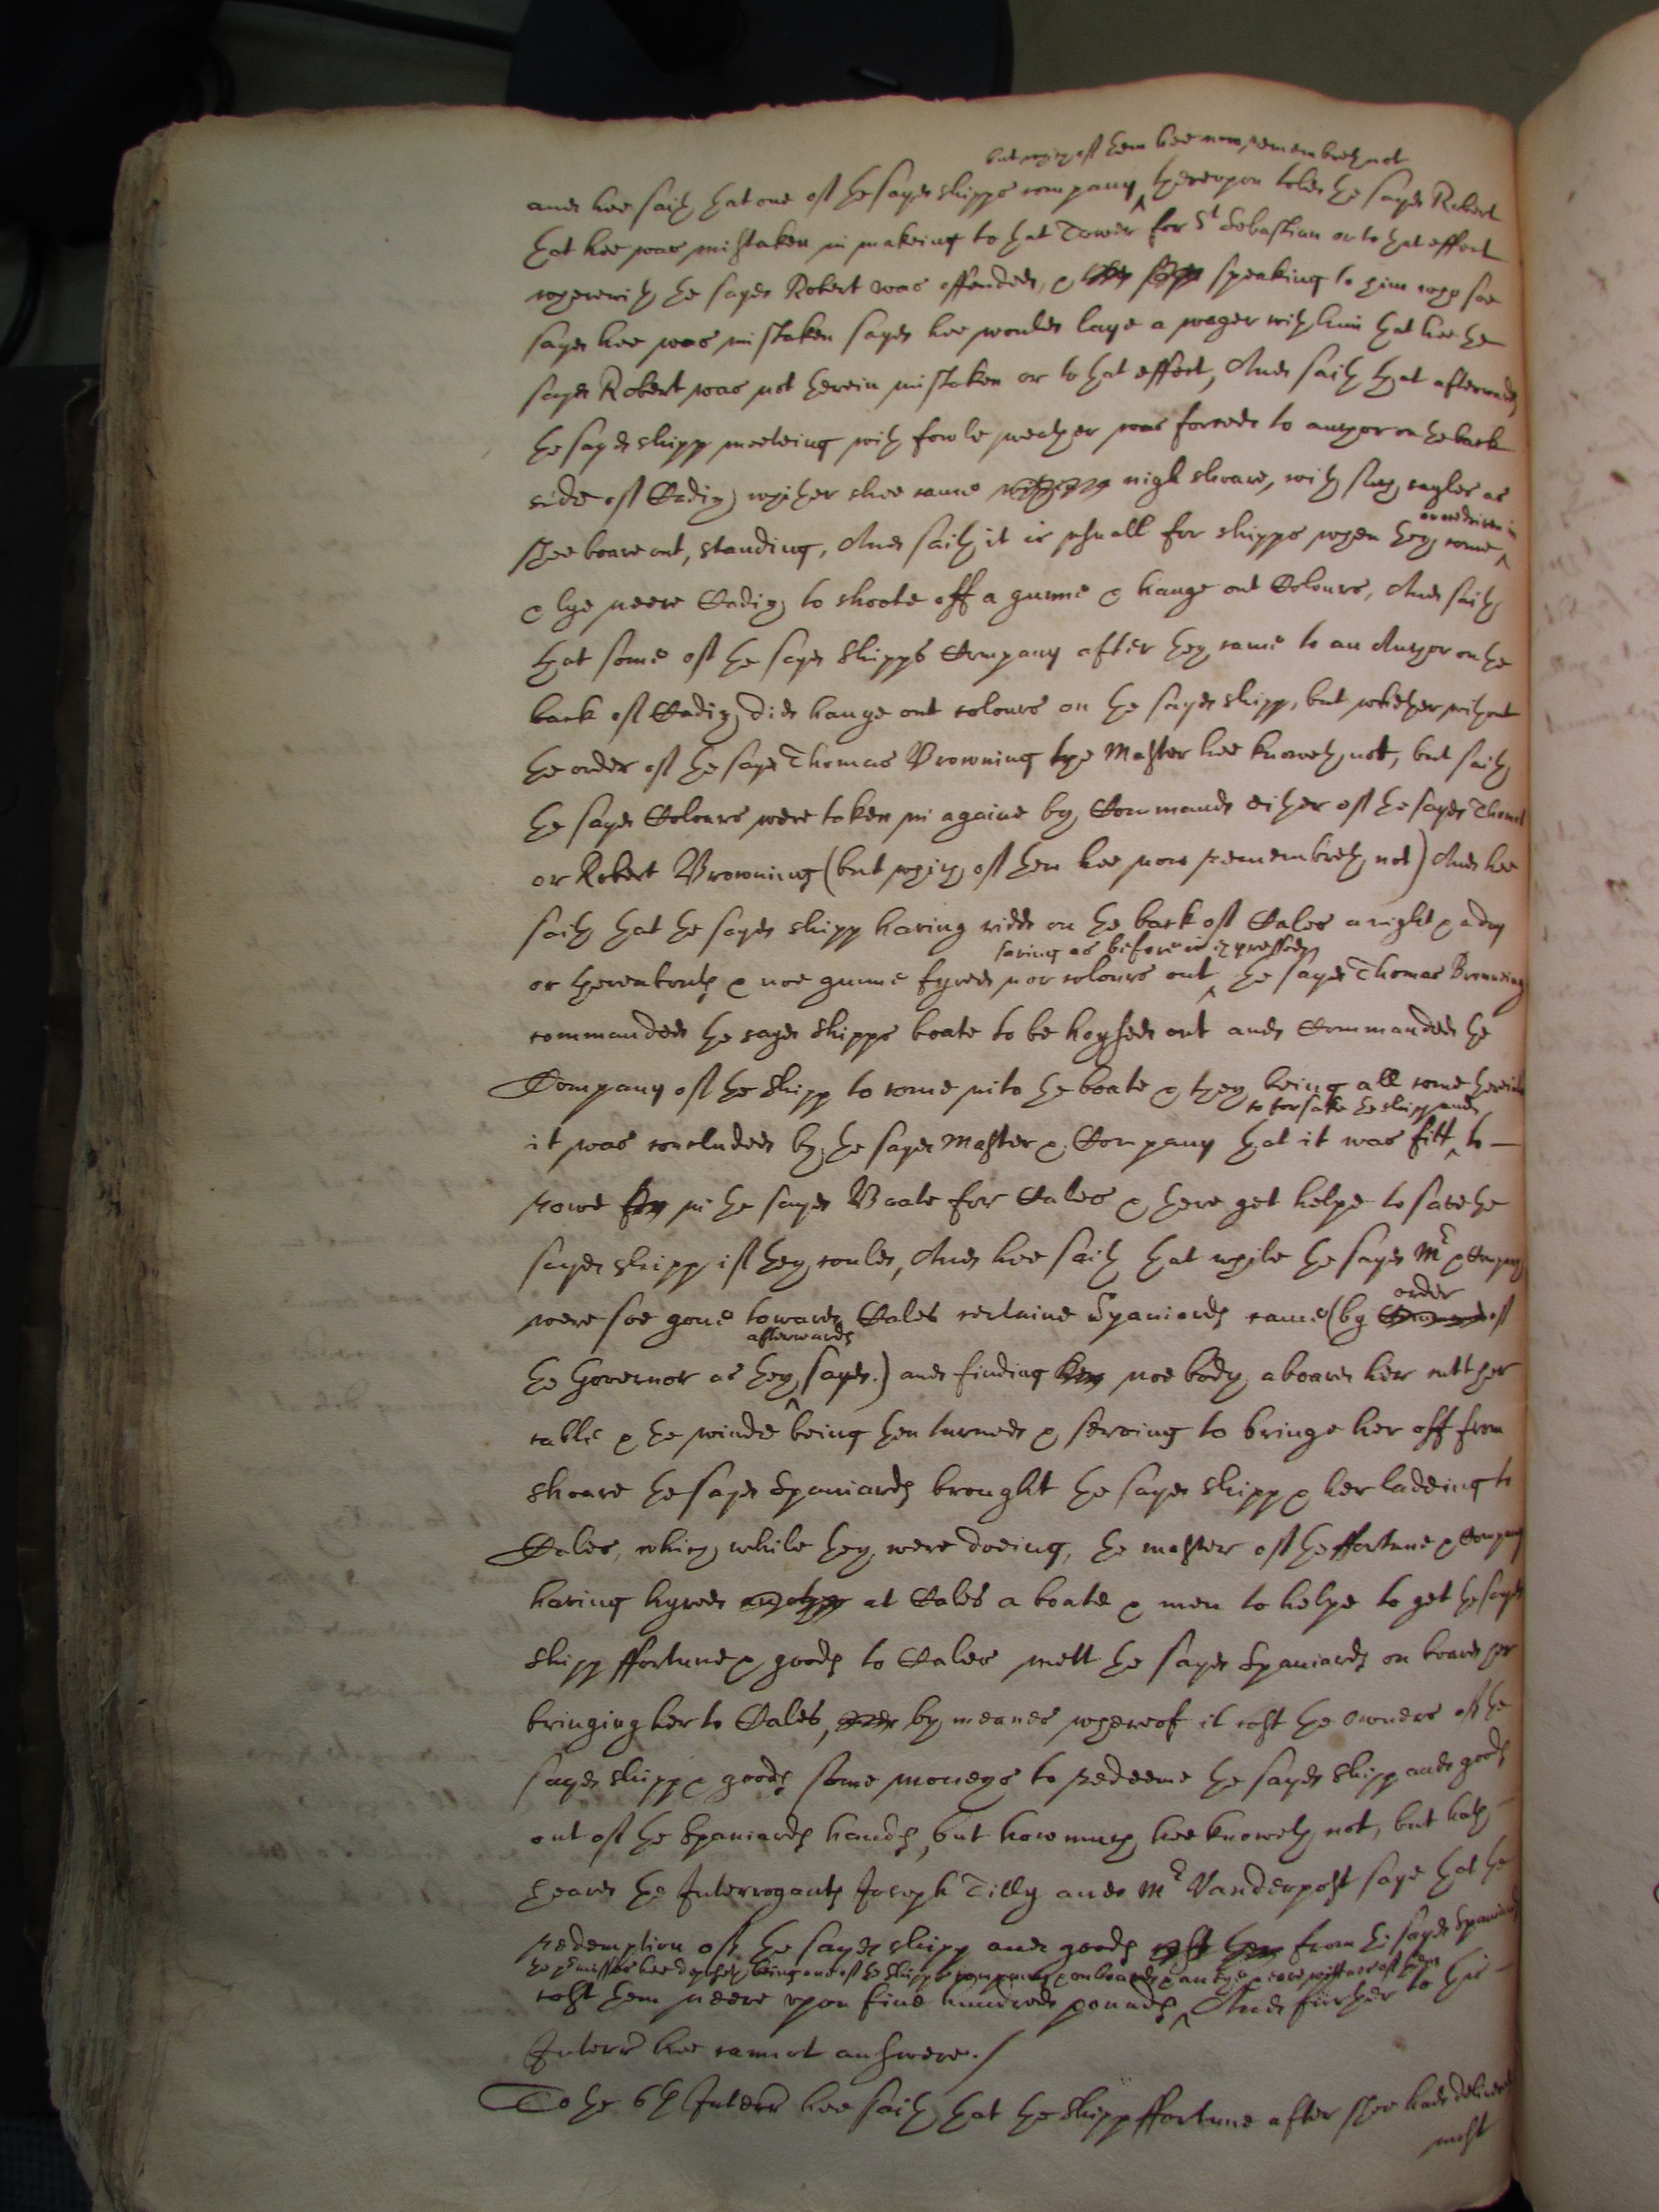 but which of them hee now remembreth not
and hee saith that one of the sayd shipps company thereupon told the sayd Robert
that hee was mistaken in makeing to that Tower for St Sebastian or to that effect
wherewith the sayd Robert was offended, & speaking to him who soe
sayd hee was mistaken sayd hee would laye a wager with him that hee the
sayd Robert was not therein mistaken or to that effect, And saith that afterwards
the sayd shipp meeteing with fowle weather was forced to anchor on the back
side of Cadiz, whither shee came nigh shoare, with such sayles as
or are driven in
shee boare out, standing, And saith it is usuall for shipps when they come
& lye neere Cadiz to shoote off a gunne & hange out Colours, And saith
that some of the sayd Shipps Company after they came to an Anchor on the
back of Cadiz did hange out colours on the sayd shipp, but whether without
the order of the sayd Thomas Browning the Master hee knoweth not, but saith
the sayd Colours were taken in againe by Command either of the sayd Thomas
or Robert Browning (but which of them hee now remembreth not) And hee
saith that the sayd shipp having ridd on the back of Cales a night & a day
saving as before is expressed
or thereabouts & noe gunne fyred nor colours out the sayd Thomas Browning
commanded the sayd shipps boate to be hoysed out and Commanded the
Company of the Shipp to come into the boate & they being all come therein
to forsake the shipp and
it was concluded by the sayd Master & Company that it was fitt to
rowe in the sayd Boate for Cales & there get helpe to save the
sayd shipp if they could, And hee saith that while the sayd Mr & Company
order
were soe gone towards Cales certaine Spaniards came (by of
afterwards
the Governor as they sayd.) and finding noe body aboard her cutt her
cable & the winde being then turned & serving to bringe her off from
shoare the sayd Spaniards brought the sayd shipp & her ladeing to
Cales, which while they were doeing, the master of the ffortune & Company
having hyred at Cales a boate & men to helpe to get the sayd
shipp ffortune & goods to Cales mett the sayd Spaniards on board her
bringing her to Cales, by meanes whereof it cost the owners of the
sayd shipp & goods some moneys to redeeme the sayd shipp and goods
out of the Spaniards hands, but how much hee knoweth not, but hath
heard the Interrogants Joseph Tilly and Mr Vanderpost saye that the
redemption of the sayd shipp and goods from the sayd Spaniards
the premisses hee deposeth being one of the shipps company & on board & an eye & eare wittnes of them
cost them neere upon five hundred pounds, And further to this
Interr hee cannot answere./
To the 6th Interr hee saith that the Shipp ffortune after shee had delivered
most